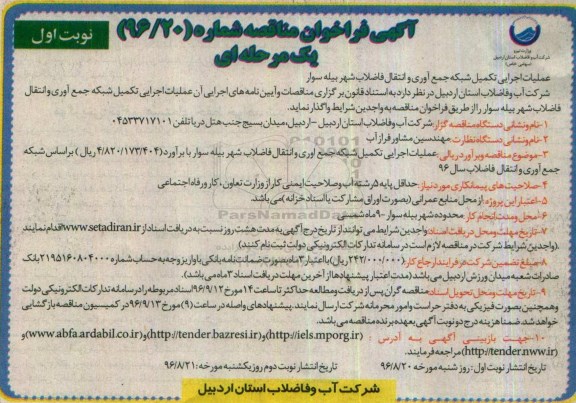 آگهی فراخوان مناقصه شماره (۹۶/۲۰)
یک مرحله ای
نوبت اول
وزارت نیرو
شرکت آب و فاضلاب استان اردبیل
(سهامی خاص)
عملیات اجرایی تکمیل شبکه جمع آوری و انتقال فاضلاب شهر بیله سوار
شرکت آب وفاضلاب استان اردبیل در نظر دارد به استناد قانون برگزاری مناقصات و آیین نامه های اجرایی آن عملیات اجرایی تکمیل شبکه جمع آوری و انتقال
فاضلاب شهر بیله سوار را از طریق فراخوان مناقصه به واجدین شرایط واگذار نماید.
۱-نام ونشانی دستگاه مناقصه گزار: شرکت آب وفاضلاب استان اردبیل -اردبیل،میدان بسیج جنب هتل دریا تلفن ۰۴۵۳۳۷۱۷۱۰۱
۲-نام ونشانی دستگاه نظارت: مهندسین مشاور فراز آب
۳-موضوع مناقصه وبرآورد ریالی: عملیات اجرایی تکمیل شبکه جمع آوری و انتقال فاضلاب شهر بیله سوار با برآورد (۴/۸۲۰/۱۷۳/۴۰۴ ریال) براساس شبکه
جمع آوری و انتقال فاضلاب سال ۹۶
۴-صلاحیت های پیمانکاری مورد نیاز: حداقل پایه ۵ رشته آب وصلاحیت ایمنی کار از وزارت تعاون، کار ورفاه اجتماعی
۵-اعتبار این پروژه: از محل منابع عمرانی (بصورت اوراق مشارکت یا اسناد خزانه) می باشد.
۶-محل ومدت انجام کار: محدوده شهر بیله سوار -۹ ماه شمسی
۷-تاریخ مهلت ومحل دریافت اسناد: واجدین شرایط می توانند از تاریخ درج آگهی به مدت هشت روز نسبت به دریافت اسناد از www.setadiran.ir اقدام نمایند
(واجدین شرایط شرکت در مناقصه لازم است در سامانه تدارکات الکترونیکی دولت ثبت نام کنند)
۸-مبلغ تضمین شرکت در فرایند ارجاع کار: (۲۴۲/۰۰۰/۰۰۰ ریال) با اعتبار ۳ ماه بصورت ضمانت نامه بانکی یا واریز وجه به حساب شماره ۲۱۹۵۱۶۰۸۰۴۰۰۰ بانک
صادرات شعبه میدان ورزش اردبیل می باشد (مدت اعتبار پیشنهادها از آخرین مهلت دریافت اسناد ۳ ماه می باشد).
۹-تاریخ مهلت ومحل تحویل اسناد: مناقصه گران پس از دریافت ومطالعه حداکثر تا ساعت ۱۴ مورخ ۹۶/۹/۱۲ اسناد مربوطه را در سامانه تدارکات الکترونیکی دولت
وهمچنین بصورت فیزیکی به دفتر حراست و امور محرمانه شرکت ارسال نمایند. پیشنهادهای واصله در ساعت (۹) مورخ ۹۶/۹/۱۳ در کمیسیون مناقصه بازگشایی
خواهد شد، ضمنا هزینه درج دو نوبت آگهی بعهده برنده مناقصه می باشد.
۱۰-جهت بازبینی آگهی به آدرس: (http://iels.mporg.ir)و(http://tender.bazresi.ir)و(www.abfa.ardabil.co.ir)و
(http://tender.nww.ir) مراجعه فرمایند.
تاریخ انتشار نوبت اول: روز شنبه مورخه ۹۶/۸/۲۰ تاریخ انتشار نوبت دوم روز یکشنبه مورخه: ۹۶/۸/۲۱
شرکت آب وفاضلاب استان اردبیل